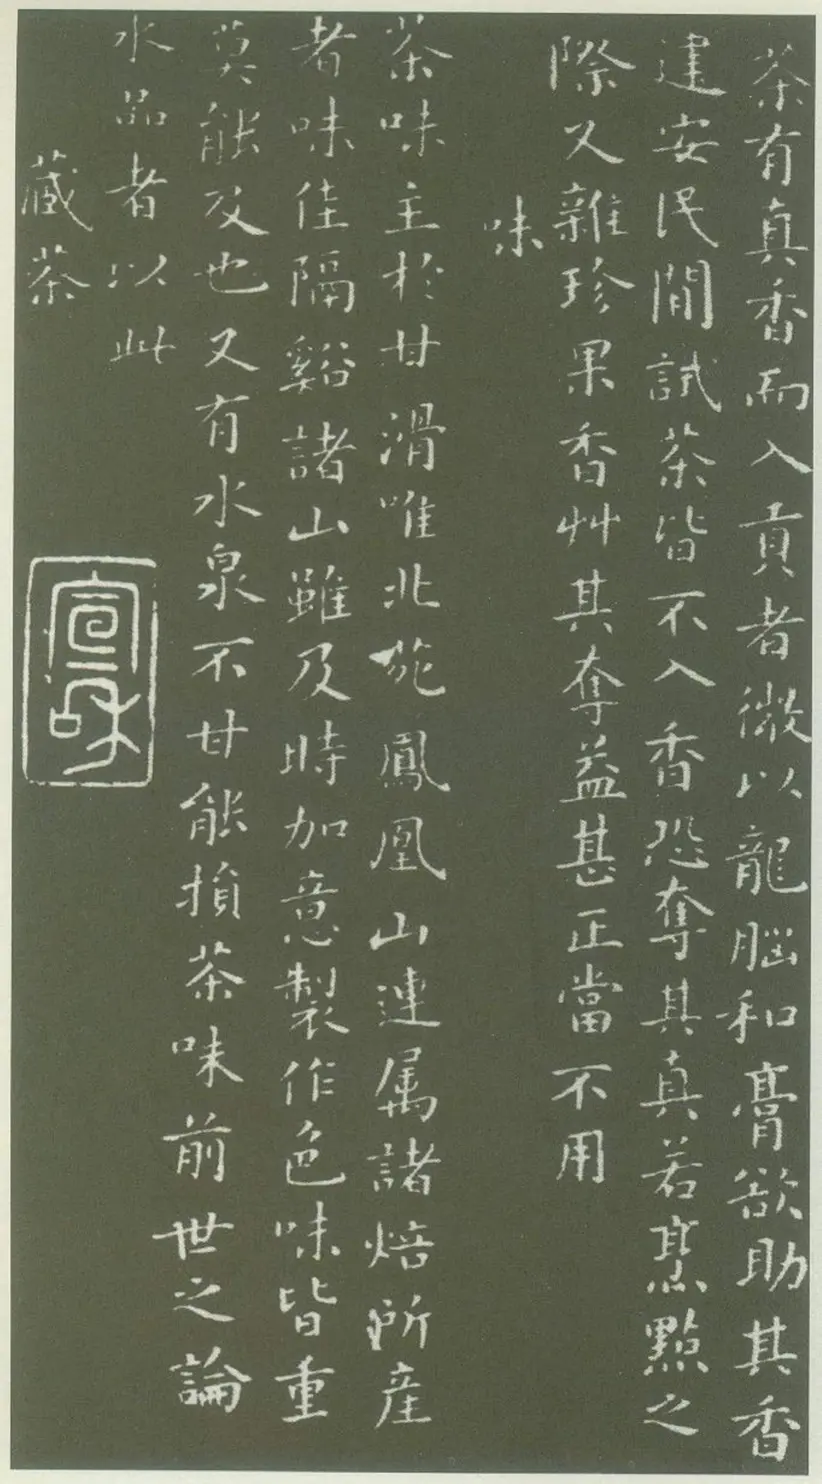 茶有真香而入貢者微以龍腦和膏欲助其香
建安民間試茶皆不入香恐奪其真若烹點之
際又雜珍果香艸其奪益甚正當不用
味
茶味主於甘滑唯北苑鳳凰山連属諸焙所産
者味佳隔谿諸山雖及時加意製作色味皆重
莫能及也又有水泉不甘能損茶味前世之論
水品者以此
藏茶